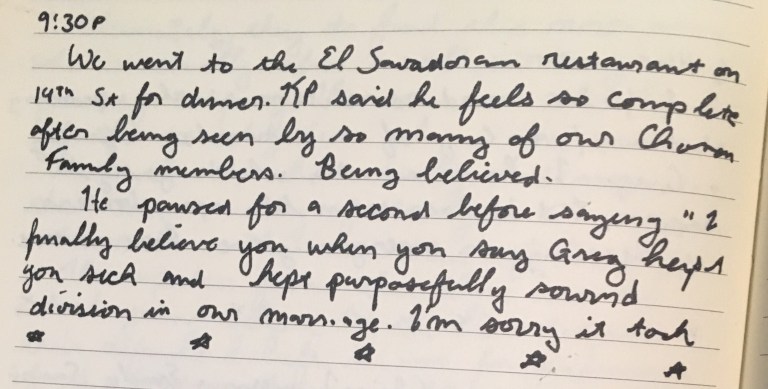 9:30P
We went to the El Savadoran restaurant on
14TH St for dinner. KP said he feels so complete
after being seen by so many of our Chosen
Family members. Being believed.
He paused for a second before saying "I
finally believe you when you say Greg kept
you sick and kept purposefully sowind
division in our marriage. I'm sorry it took